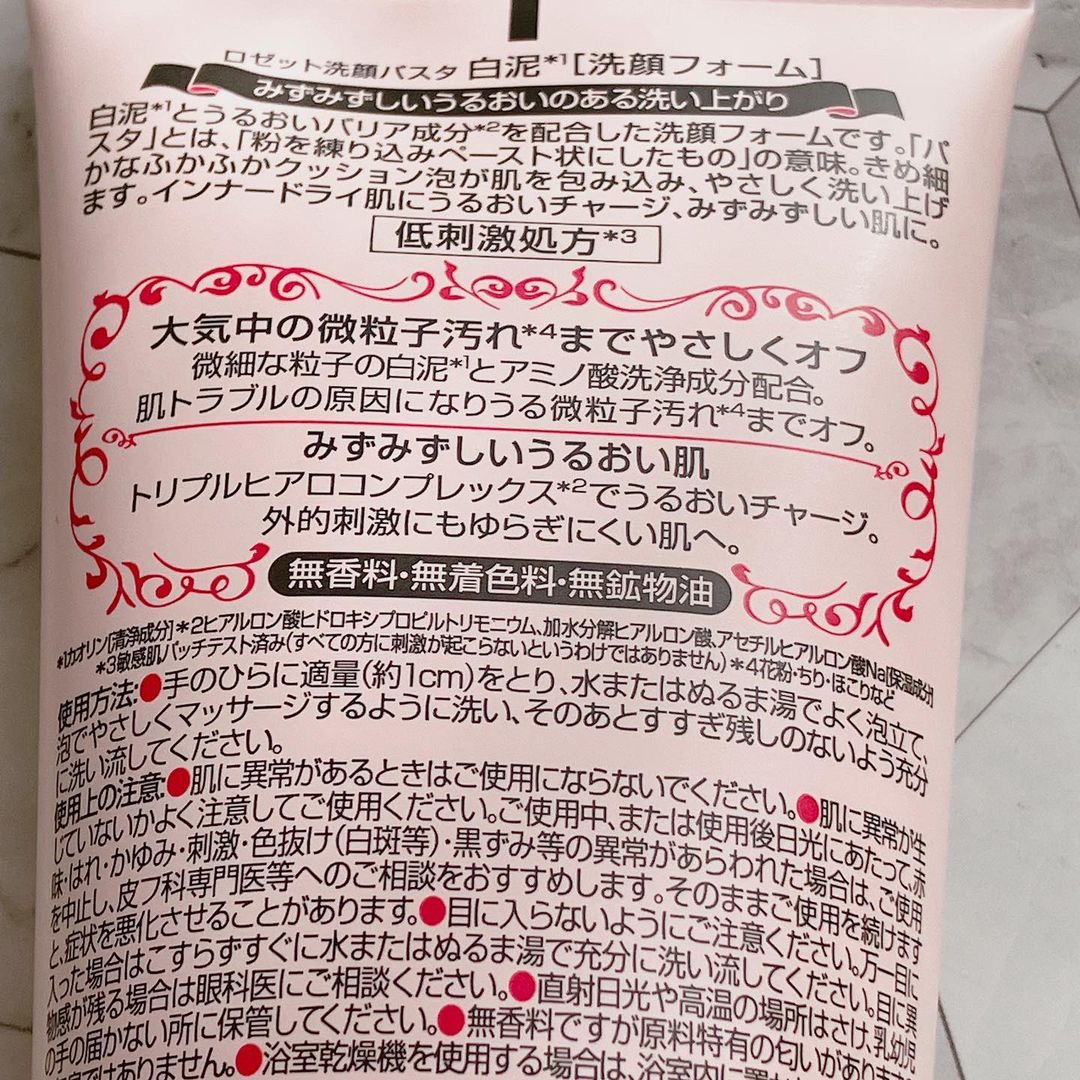 ロゼット洗顔パスタ 白泥*1[洗顔フォーム]
みずみずしいうるおいのある洗い上がり
白泥*1とうるおいバリア成分*2を配合した洗顔フォームです。「パ
スタ」とは、「粉を練り込みペースト状にしたもの」の意味。きめ細
かなふかふかクッション泡が肌を包み込み、やさしく洗い上げ
ます。インナードライ肌にうるおいチャージ、みずみずしい肌に。
低刺激処方*3
大気中の微粒子汚れ*4までやさしくオフ
微細な粒子の白泥*1とアミノ酸洗浄成分配合。
肌トラブルの原因になりうる微粒子汚れ*4までオフ。
みずみずしいうるおい肌
トリプルヒアロコンプレックス*2でうるおいチャージ。
外的刺激にもゆらぎにくい肌へ。
無香料・無着色料・無鉱物油
*1カオリン[清浄成分] *2ヒアルロン酸ヒドロキシプロピルトリモニウム、加水分解ヒアルロン酸、アセチルヒアルロン酸Na[保湿成分]
*3敏感肌パッチテスト済み(すべての方に刺激が起こらないというわけではありません) *4花粉・ちり・ほこりなど
使用方法:●手のひらに適量(約1cm)をとり、水またはぬるま湯でよく泡立て、
泡でやさしくマッサージするように洗い、そのあとすすぎ残しのないよう充分
に洗い流してください。
使用上の注意:●肌に異常があるときはご使用にならないでください。●肌に異常が生
じていないかよく注意してご使用ください。ご使用中、または使用後日光にあたって、赤
味・はれ・かゆみ・刺激・色抜け(白斑等)・黒ずみ等の異常があらわれた場合は、ご使用
を中止し、皮フ科専門医等へのご相談をおすすめします。そのままご使用を続けます
と、症状を悪化させることがあります。●目に入らないようにご注意ください。万一目に
入った場合はこすらずすぐに水またはぬるま湯で充分に洗い流してください。目に異
物感が残る場合は眼科医にご相談ください。●直射日光や高温の場所はさけ、乳幼児
の手の届かない所に保管してください。●無香料ですが原料特有の匂いがあります
ではありません。●浴室乾燥機を使用する場合は、浴室内に置